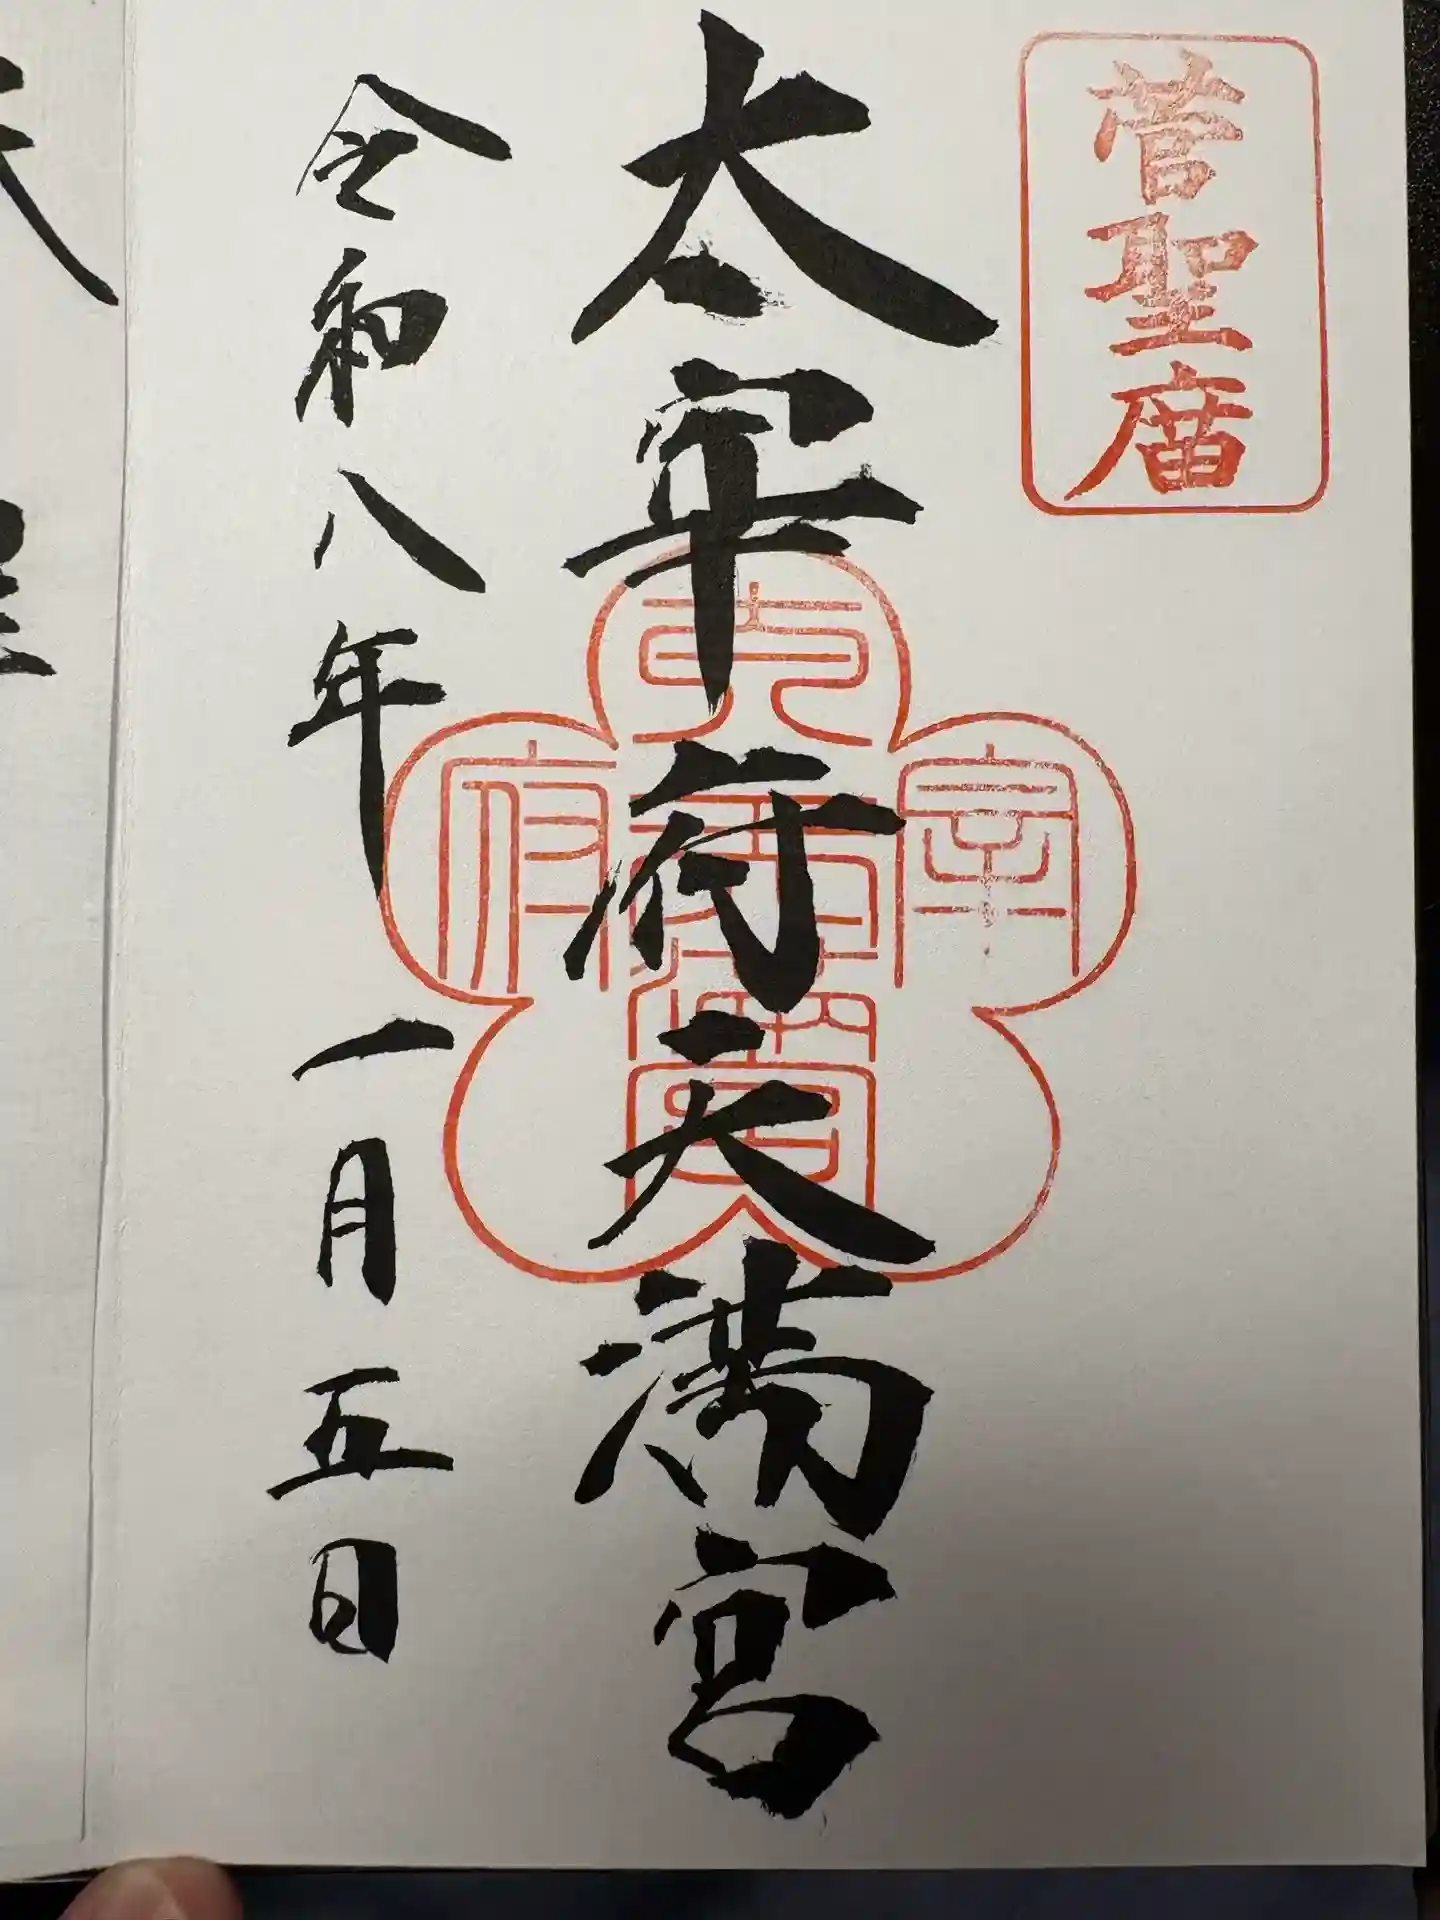 菅聖庿
太宰府天満宮
令和八年一月五日
太
宰
府
天満宮